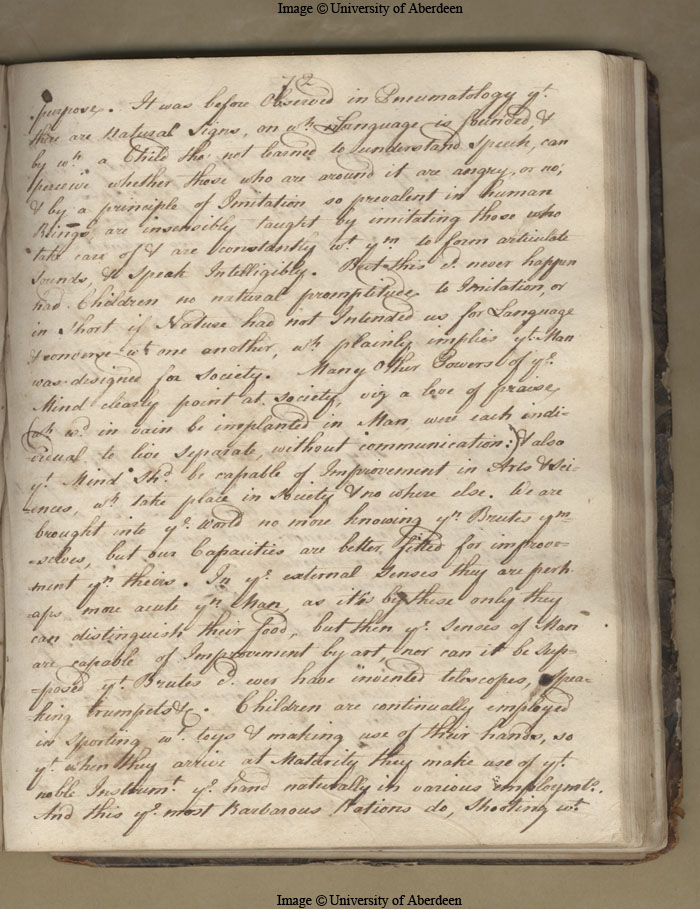 Image © University of Aberdeen
72
purpose. It was before Observed in Pneumatology yt.
there are Natural Signs, on wh. Language is founded, &
by wh. a Child tho' not learned to understand Speech, can
perceive whether those who are around it are angry, or no;
& by a principle of Imitation so prevalent in human
Beings, are insensibly taught by imitating those who
take care of & are constantly wt. ym to form articulate
sounds, & Speak Intelligibly. But this d. never happen
had Children no natural promptitude to Imitation, or
in Short if Nature had not Intended us for Language
& converse wt. one another, wh. plainly implies yt. Man
was designed for Society. Many Other Powers of ye.
Mind clearly point at Society, viz a love of praise
wh. wd. in vain be implanted in Man, were each indi-
vidual to live separate, without communication: & also
yt. Mind Shd. be capable of Improvement in Arts & Sci-
ences, wh. take place in Society & no where else. We are
brought into ye. World no more knowing yn. Brutes ym-
-selves, but our Capacities are better fitted for improve-
ment yn. theirs. In ye. external Senses they are perh-
aps more acute yn. Man, as it is by these only they
can distinguish their food, but then ye. Senses of Man
are capable of Improvement by art nor can it be sup-
-posed yt. Brutes d. ever have invented telescopes, Spea-
-king trumpets &c. Children are continually employed
in Sporting wt. toys & making use of their hands, so
yt. when they arrive at Maturity they make use of yt.
noble Instrumt. ye. hand naturally in various employmts.
And this ye. most Barbarous Nations do, Shooting wt.
Image © University of Aberdeen